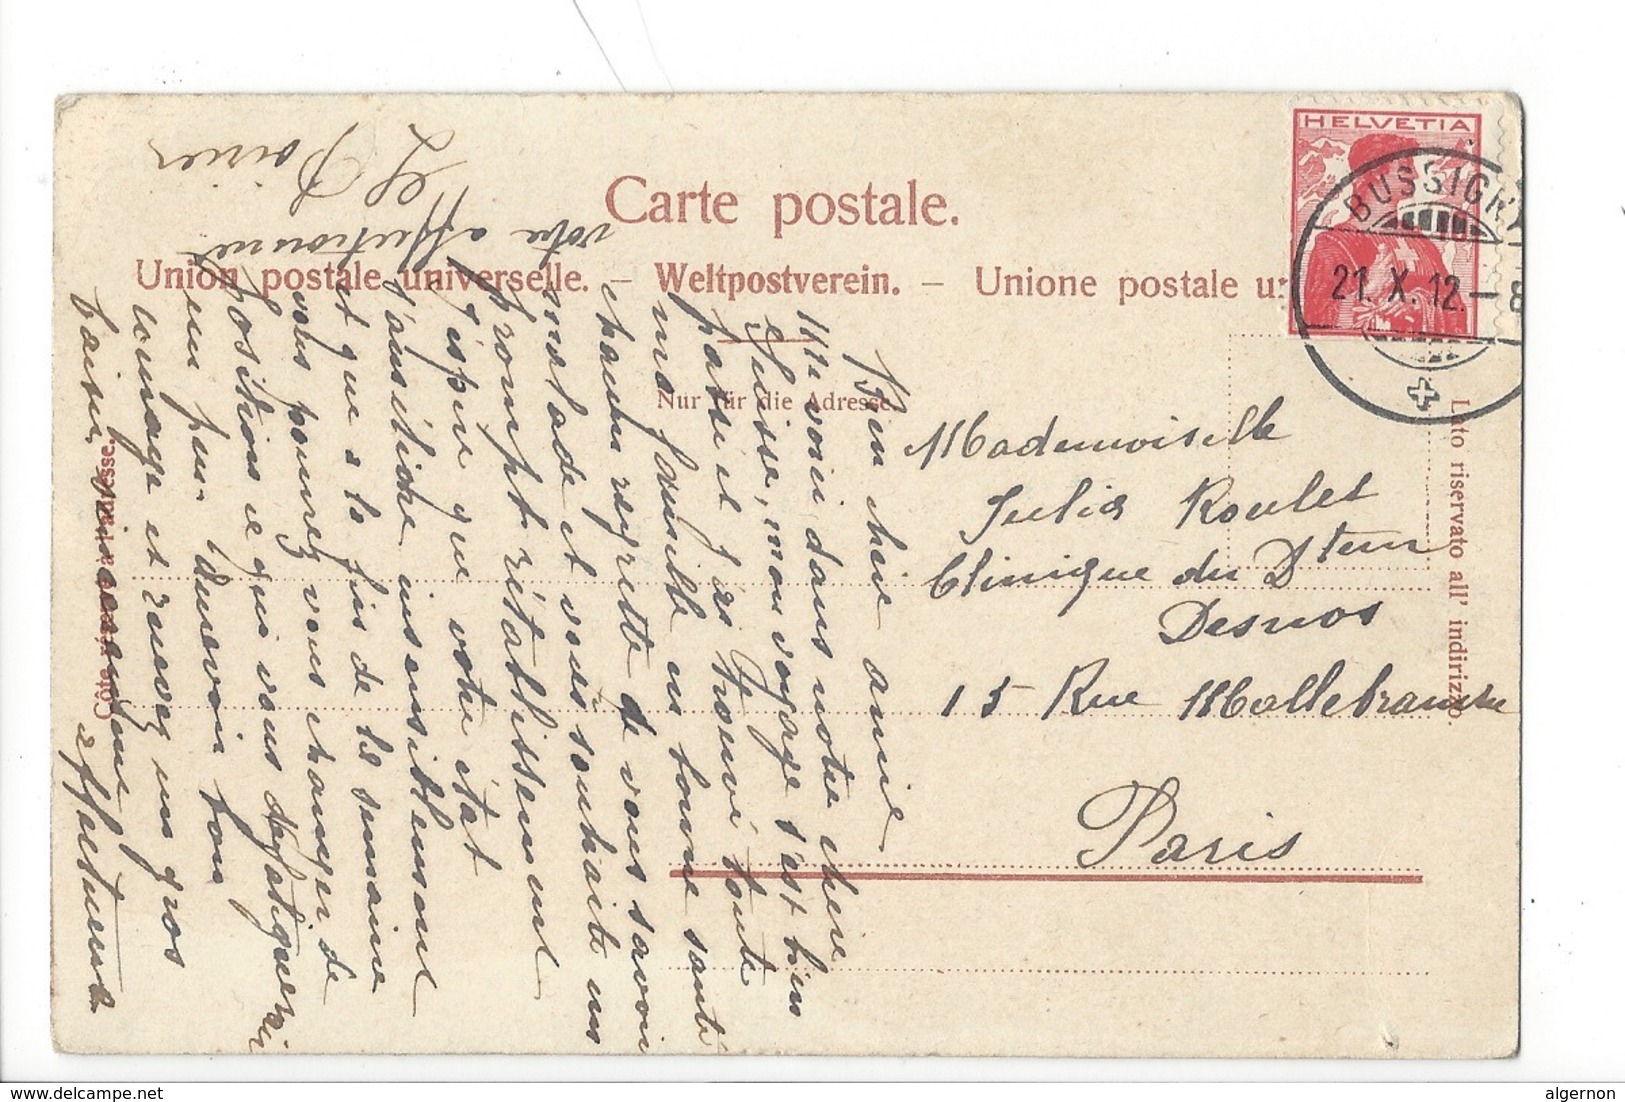 Carte postale.
Union postale universelle. – Weltpostverein. – Unione postale u
Nur für die Adresse.
Côté réservé à l'adresse.
Lato riservato all' indirizzo.
HELVETIA
10
BUSSIGNY
21. X. 12.–8
Mademoiselle
Julia Roulet
Clinique du Dteur
Desnos
15 Rue Mallebranche
Paris
Bien chère amie
Me voici dans notre chère
Suisse, mon voyage s'est bien
passé et j'ai trouvé toute
ma famille en bonne santé
regrette de vous savoir
malade et vous souhaite un
prompt rétablissement
J'espère que votre état
s'améliore insensiblement
et que a la fin de la semaine
vous pourrez vous changer de
positions ce qui vous
un peu. Au revoir bon
courage et recevez un gros
baiser
affectueux
votre affectionnée
Poirier
delcampe.net
algernon